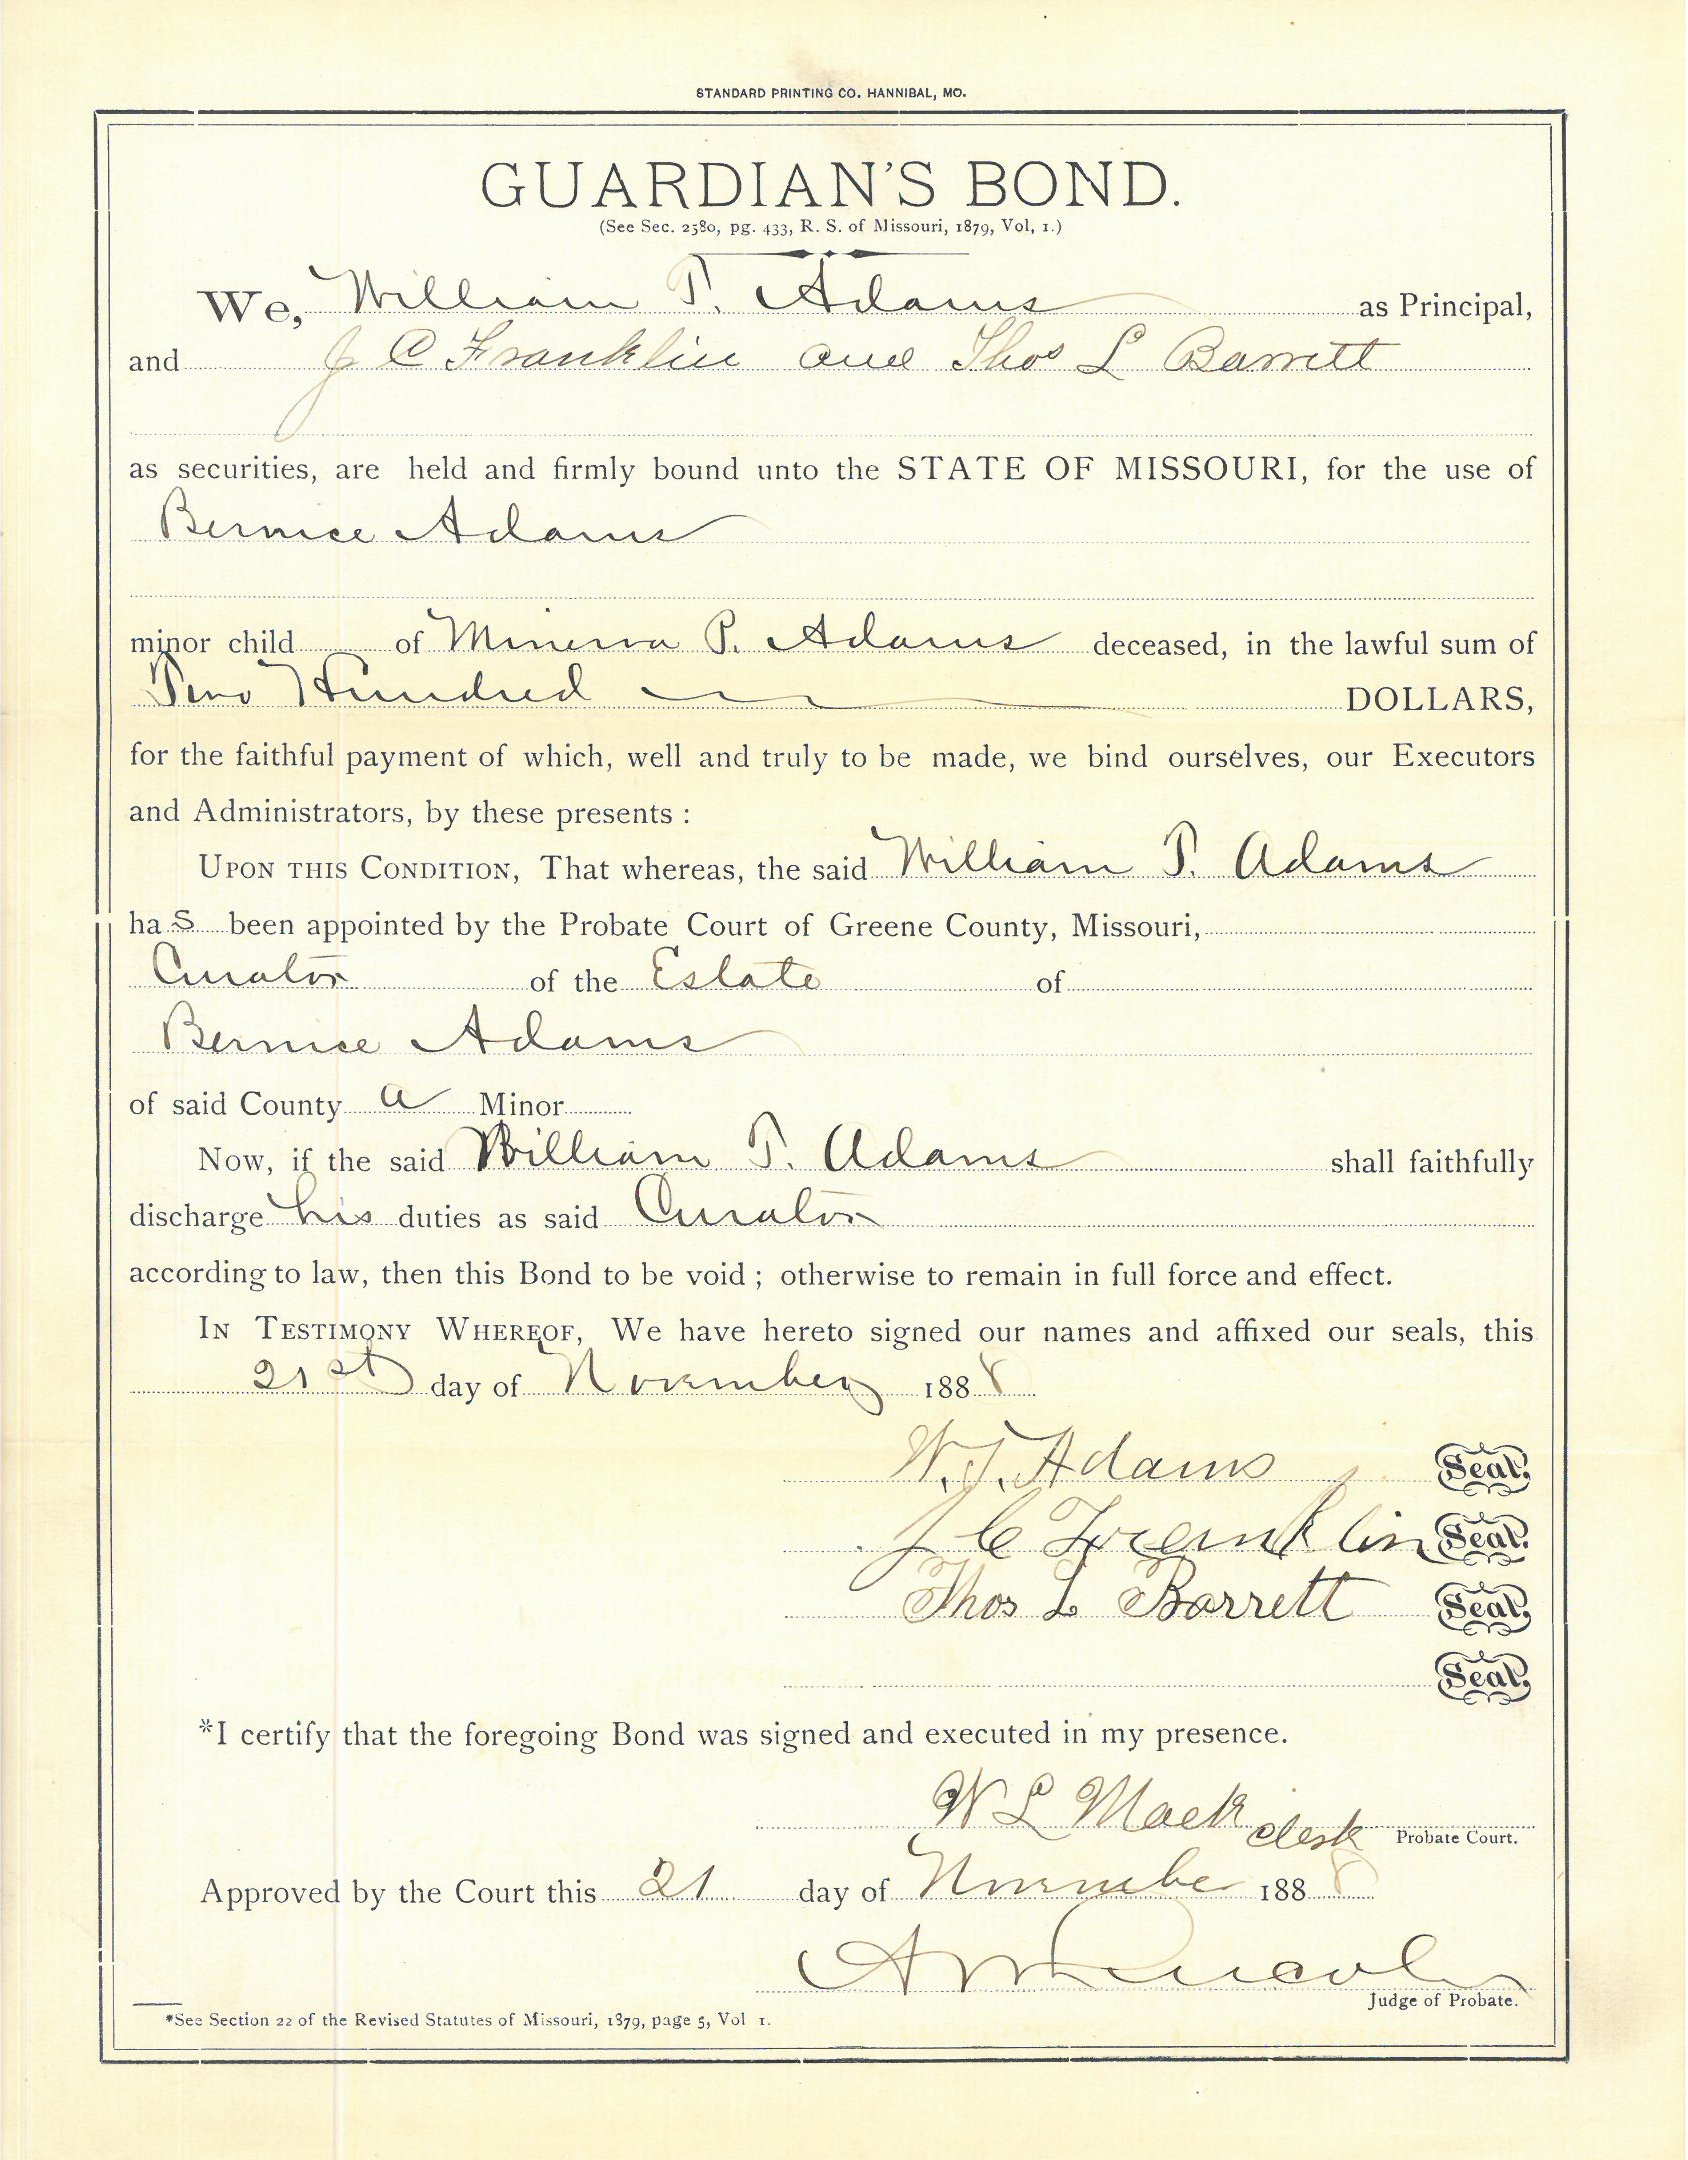 STANDARD PRINTING CO. HANNIBAL, MO.
GUARDIAN'S BOND.
(See Sec. 2580, pg. 433, R. S. of Missouri, 1879, Vol, 1.)
We, William T. Adams as Principal,
and J C Franklin and Thos L Barrett
as securities, are held and firmly bound unto the STATE OF MISSOURI, for the use of
Bernice Adams
minor child of Minerva P. Adams deceased, in the lawful sum of
Two Hundred DOLLARS,
for the faithful payment of which, well and truly to be made, we bind ourselves, our Executors
and Administrators, by these presents :
UPON THIS CONDITION, That whereas, the said William T. Adams
has been appointed by the Probate Court of Greene County, Missouri,
Curator of the Estate of
Bernice Adams
of said County a Minor
Now, if the said William T. Adams shall faithfully
discharge his duties as said Curator
according to law, then this Bond to be void ; otherwise to remain in full force and effect.
IN TESTIMONY WHEREOF, We have hereto signed our names and affixed our seals, this
21st day of November 1888
W. T. Adams Seal.
J C Franklin Seal.
Thos L Barrett Seal.
Seal.
*I certify that the foregoing Bond was signed and executed in my presence.
W L Mack Clerk Probate Court.
Approved by the Court this 21 day of November 1888
Judge of Probate.
*See Section 22 of the Revised Statutes of Missouri, 1879, page 5, Vol 1.